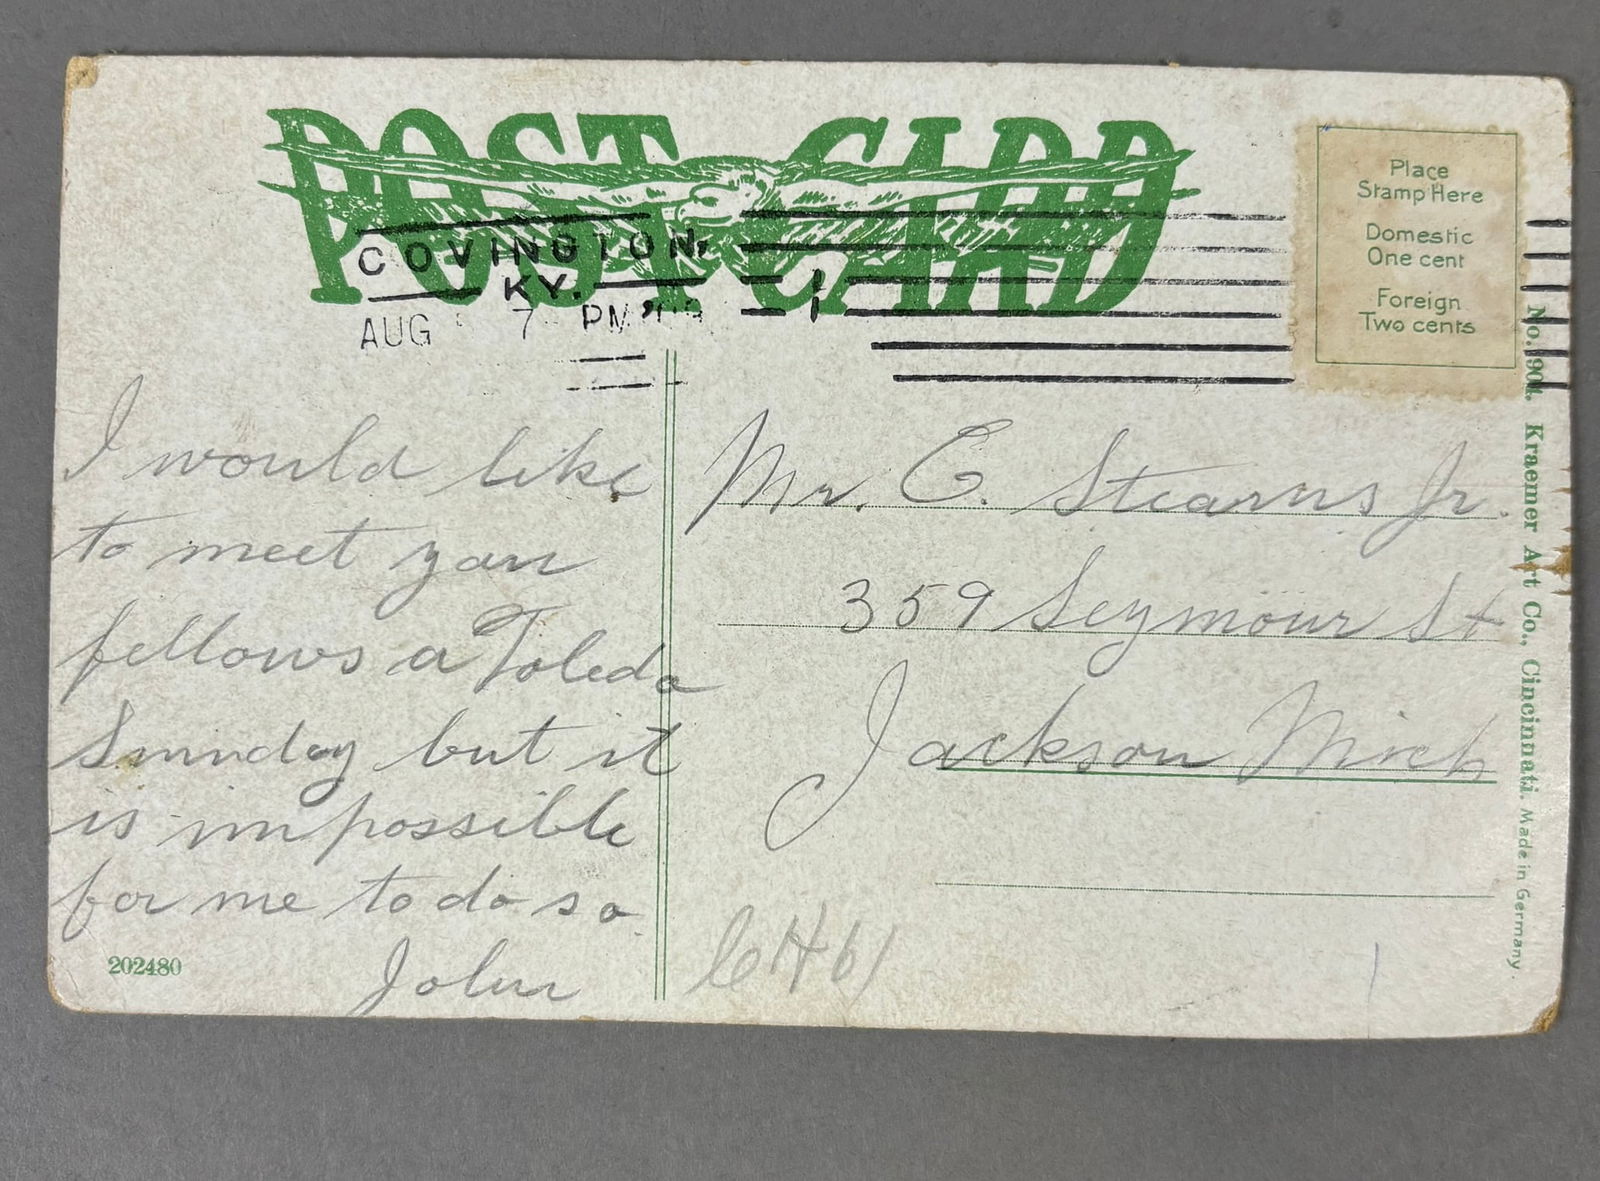 POST CARD
COVINGTON,
KY.
AUG 7 PM
1
Place
Stamp Here
Domestic
One cent
Foreign
Two cents
I would like
to meet you
fellows a Toledo
Sunday but it
is impossible
for me to do so
John
202480
Mr. C. Stearns Jr.
359 Seymour St
Jackson Mich
Kraemer Art Co., Cincinnati. Made in Germany.